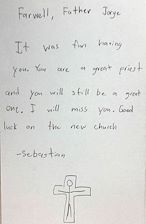 Farwell, Father Jorge
It was fun having
you. You are a great priest
and you will still be a great
one. I will miss you. Good
luck on the new church
-Sebastian